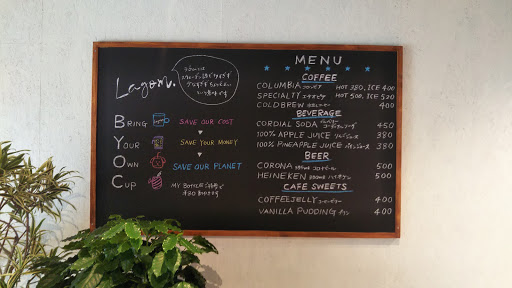 Lagom.
BRING
YOUR
OWN
CUP
SAVE OUR COST
SAVE YOUR MONEY
SAVE OUR PLANET
MY BOTTLE
MENU
COFFEE
COLUMBIA コロンビア HOT 380, ICE 400
SPECIALTY エチオピア HOT 500, ICE 520
COLDBREW 400
BEVERAGE
CORDIAL SODA 450
100% APPLE JUICE りんごジュース 380
100% PINEAPPLE JUICE 380
BEER
CORONA 500
HEINEKEN ハイネケン 500
CAFE SWEETS
COFFEEJELLY コーヒーゼリー 400
VANILLA PUDDING プリン 400